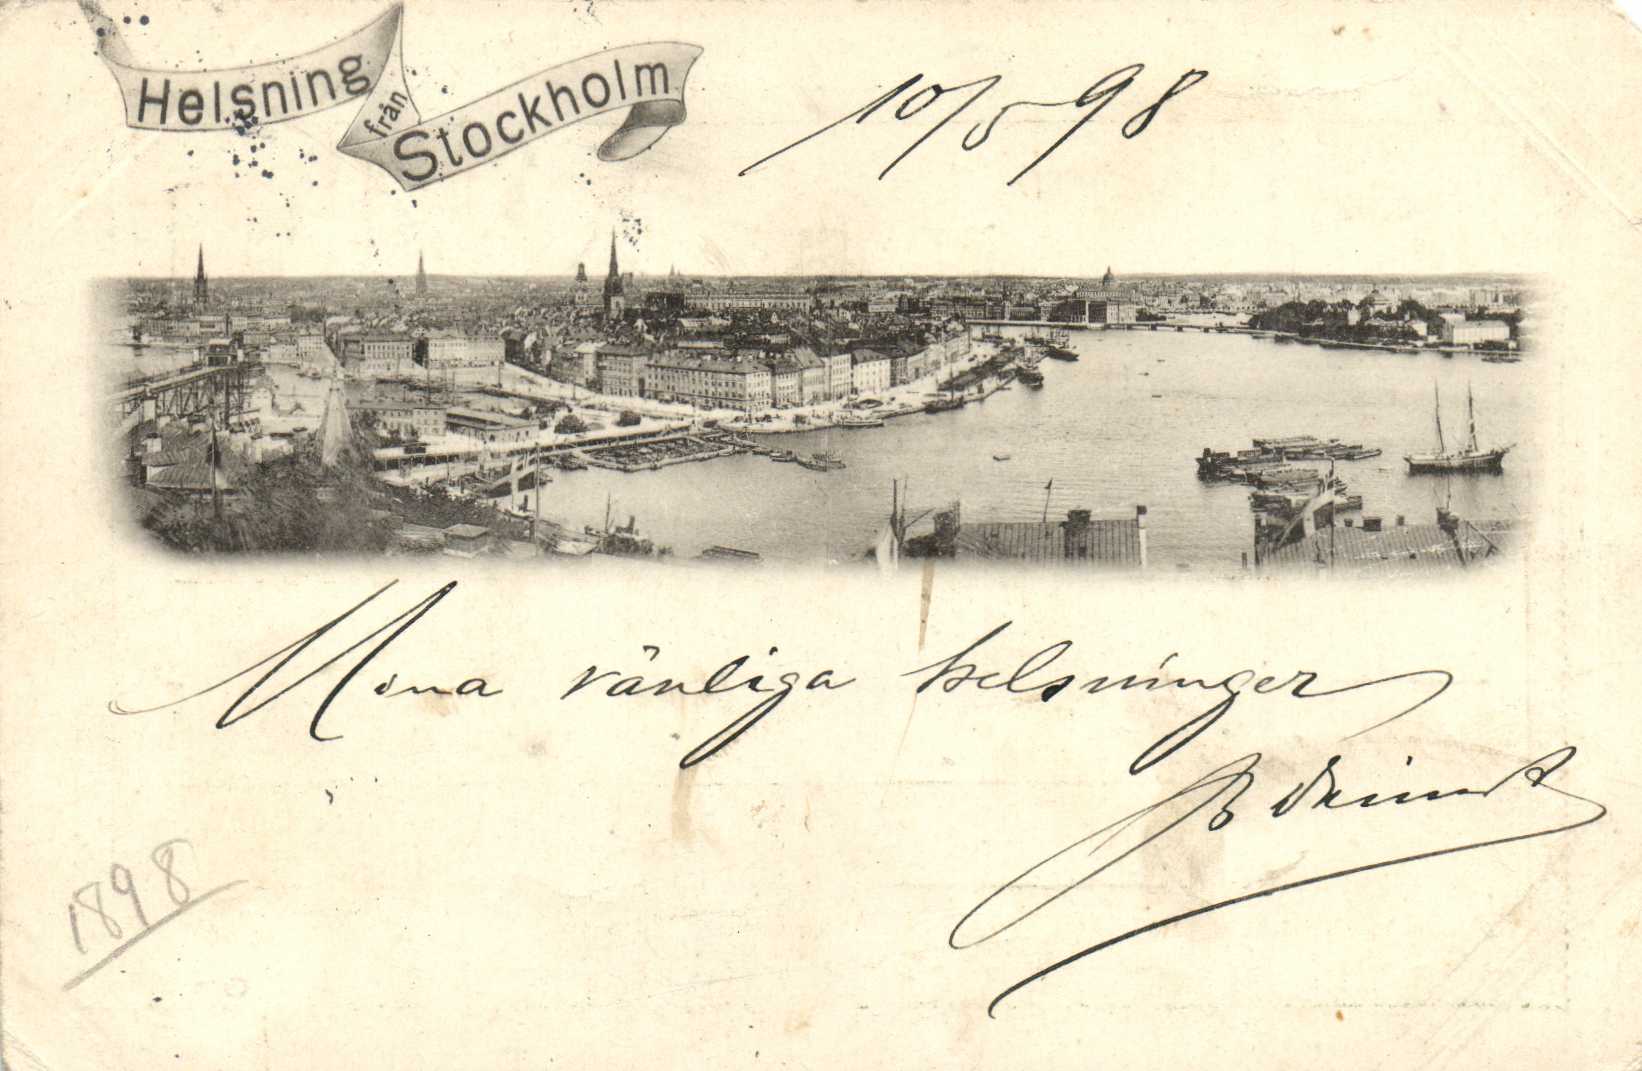 Helsning
från
Stockholm
10/5 98
Mina vänliga helsninger
1898